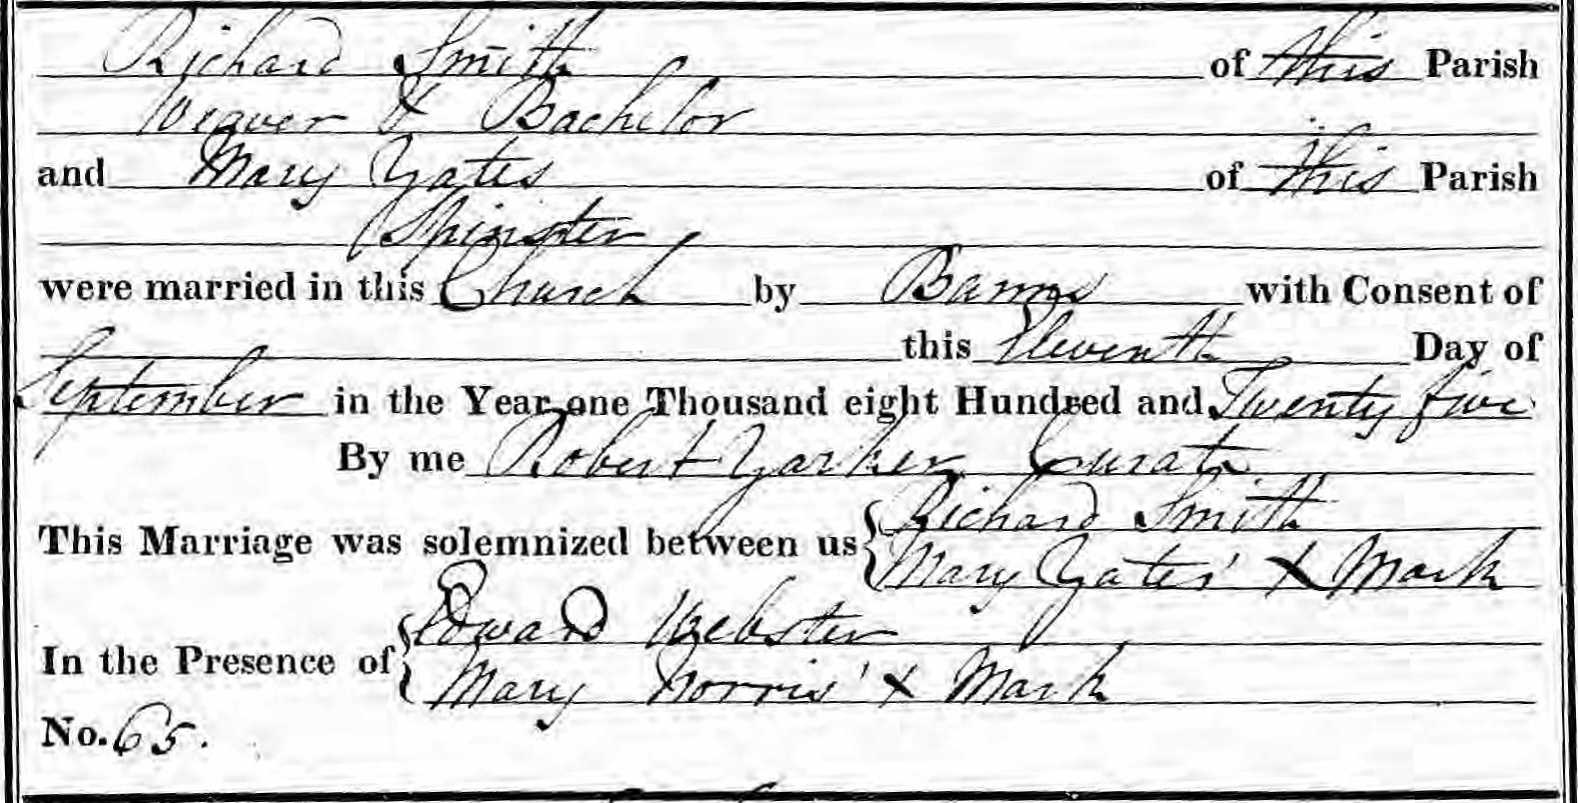 Richard Smith of this Parish
Weaver & Bachelor
and Mary Yates of this Parish
Spinster
were married in this Church by Banns with Consent of
this Eleventh Day of
September in the Year one Thousand eight Hundred and Twenty five
By me Robert Yarker Curate
Richard Smith
This Marriage was solemnized between us
Mary Yates' X Mark
Edward Webster
In the Presence of
Mary Norris' X Mark
No. 65.